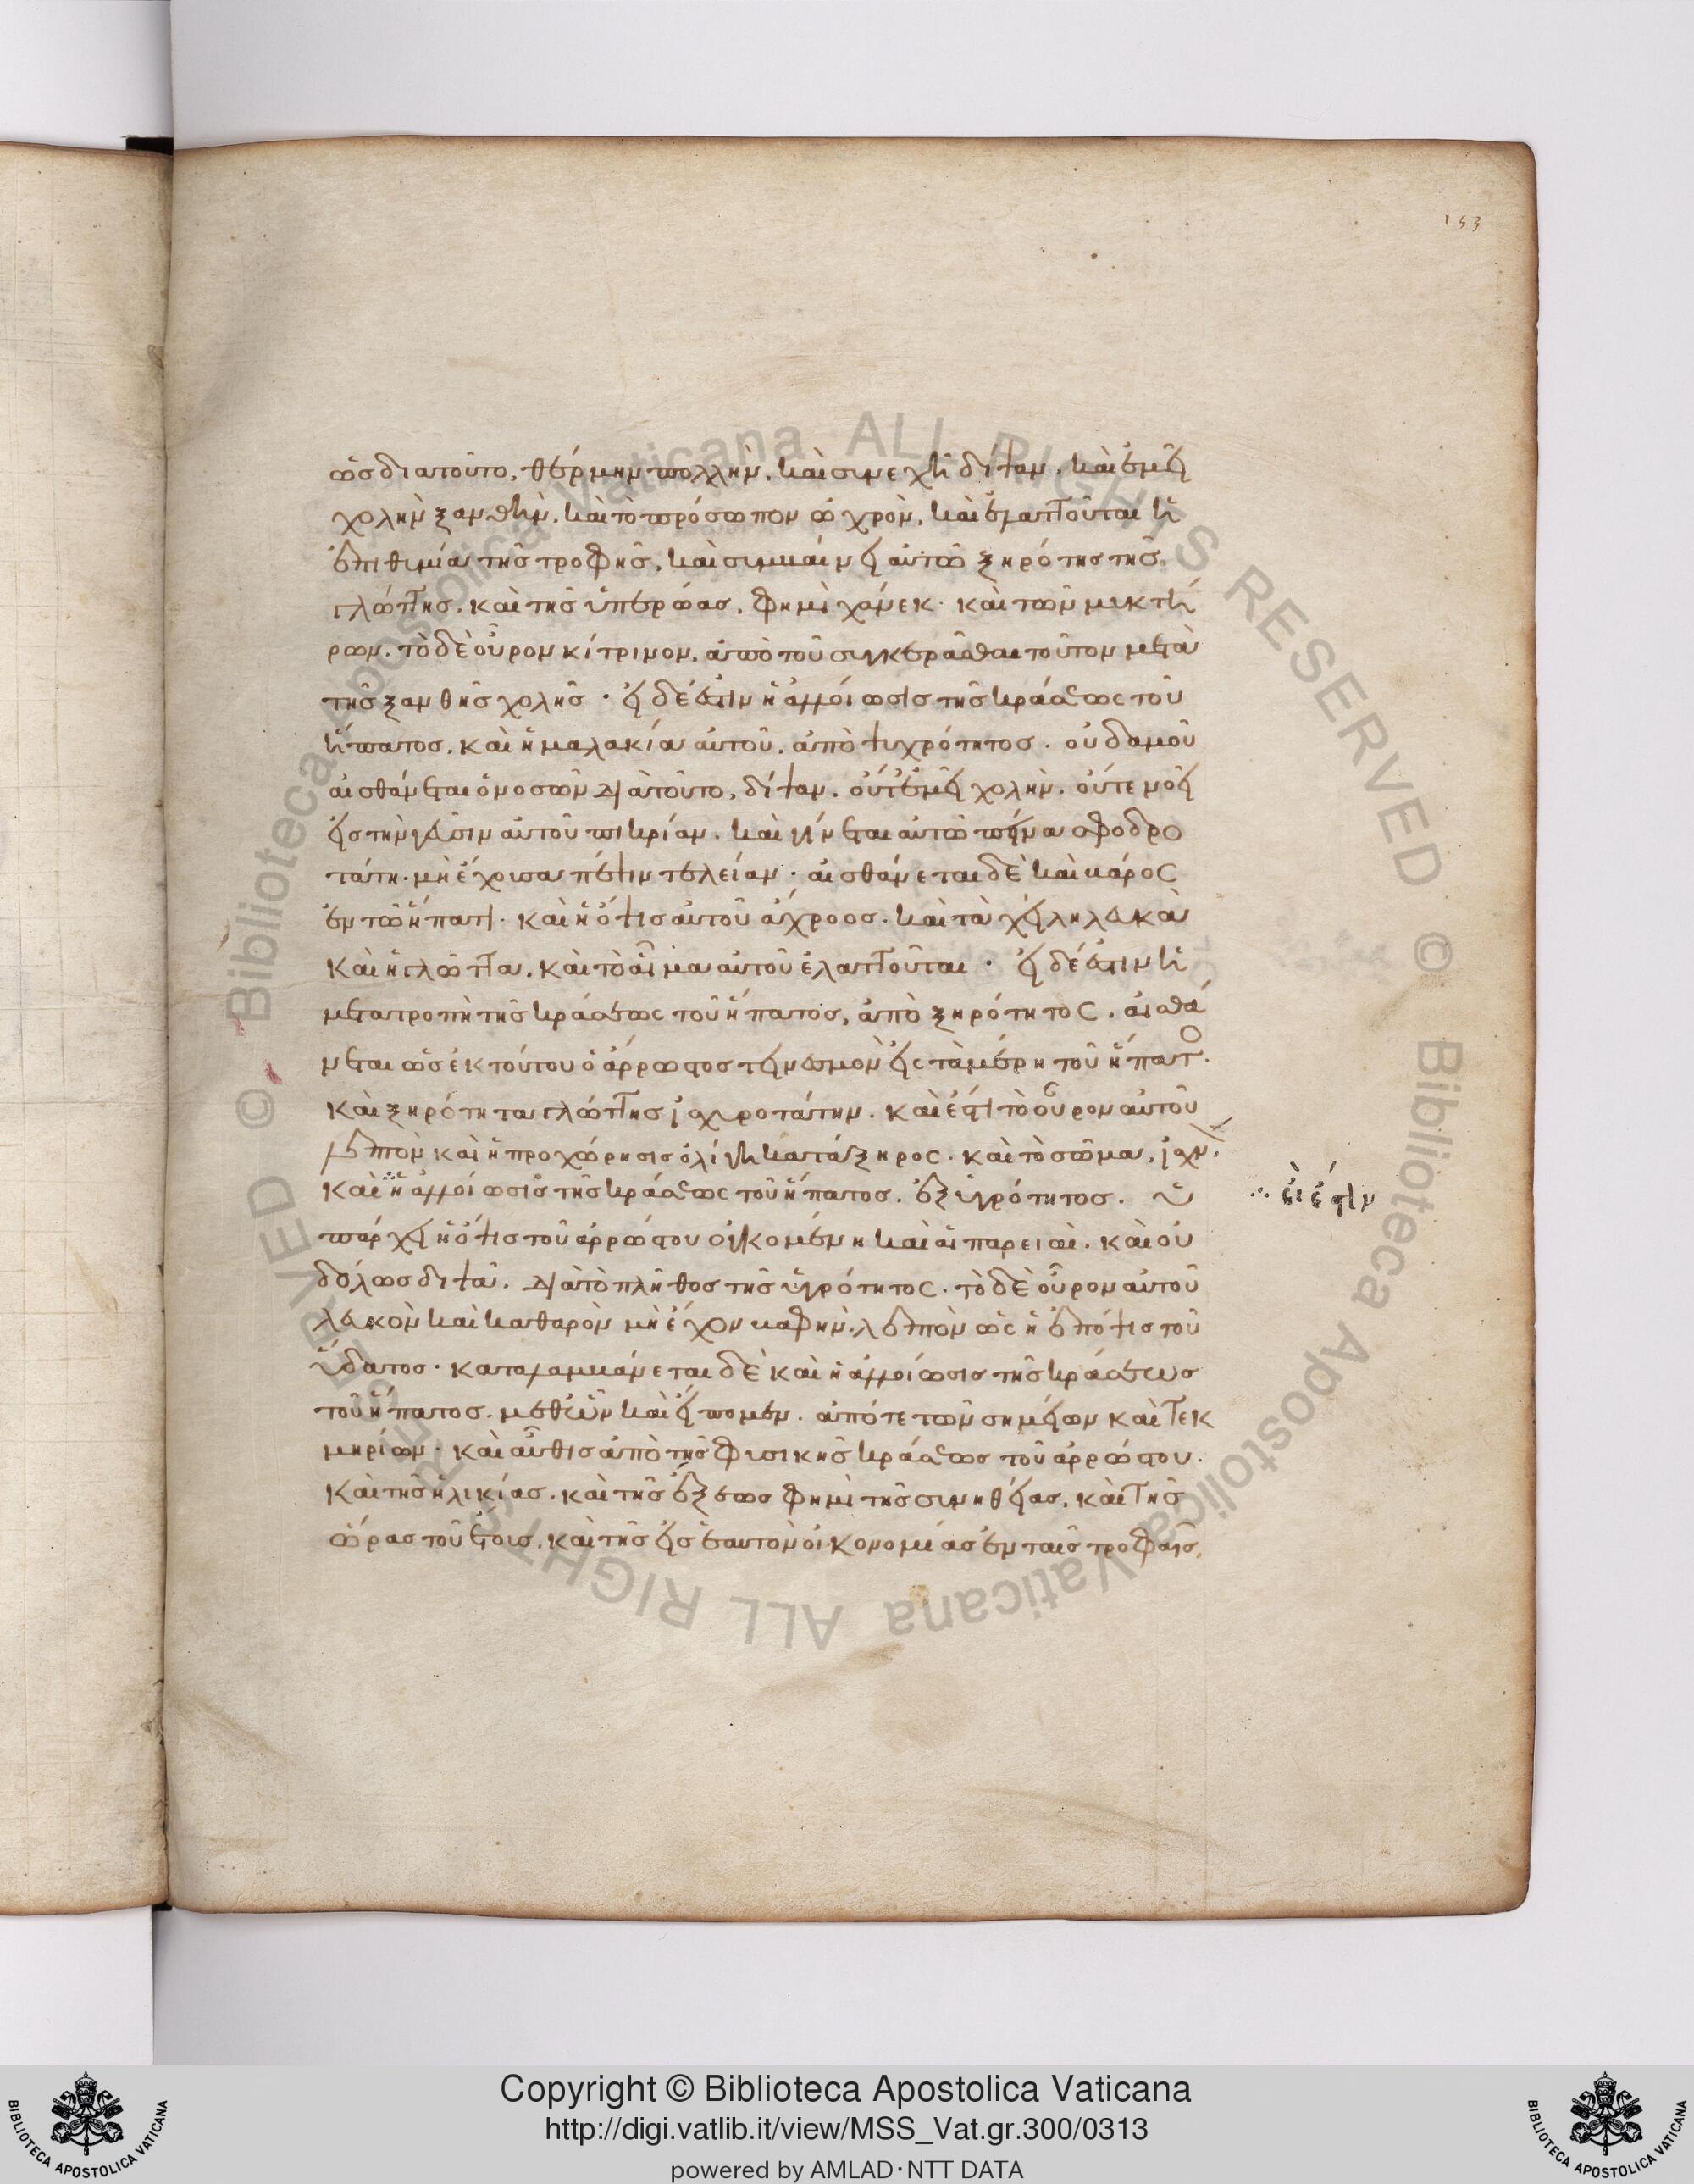 153
ὡς διατοῦτο, θέρμην πολλὴν, καὶ συνεχῆ δίψαν. καὶ ἐμεῖ
χολὴν ξανθὴν. καὶ τὸ πρόσωπον ὠχρὸν, καὶ ἐλαττοῦται ἡ
ἐπιθυμία τῆς τροφῆς, καὶ συμβαίνει αὐτῶ ξηρότης τῆς
γλώττης. καὶ τῆς ὑπερώας, φημὶ χάνεκ. καὶ τῶν μυκτή
ρων. τὸ δὲ οὖρον κίτρινον, ἀπὸ τοῦ συγκερᾶσθαι τοῦτον μετὰ
τῆς ξανθῆς χολῆς. εἰ δέ ἐστιν ἡ ἀλλοίωσις τῆς κράσεως τοῦ
ἥπατος, καὶ ἡ μαλακία αὐτοῦ, ἀπὸ ψυχρότητος. οὐδαμοῦ
αἰσθάνεται ὁ νοσῶν διατοῦτο, δίψαν. οὔτ' ἐμεῖ χολὴν. οὔτε νοεῖ
εἰς τὴν γεῦσιν αὐτοῦ πικρίαν. καὶ γίνεται αὐτῶ πεῖνα σφοδρο
τάτη. μὴ ἔχουσα πέψιν τελείαν. αἰσθάνεται δὲ καὶ βάρος
ἐν τῶ ἥπατι. καὶ ἡ ὄψις αὐτοῦ ἄχροος. καὶ τὰ χείλη λευκὰ
καὶ ἡ γλῶττα. καὶ τὸ αἷμα αὐτοῦ ἐλαττοῦται. εἰ δέ ἐστιν ἡ
μετατροπὴ τῆς κράσεως τοῦ ἥπατος, ἀπὸ ξηρότητος. αἰσθά
νεται ὡς ἐκ τούτου ὁ ἄρρωστος τεινεσμὸν εἰς τὰ μέρη τοῦ ἥπατο.
καὶ ξηρότητα γλώττης ἰσχυροτάτην. καὶ ἔστι τὸ οὖρον αὐτοῦ
λεπτὸν καὶ ἡ προχώρησις ὀλίγη κατάξηρος. καὶ τὸ σῶμα, ἰσχν.
καὶ ἡ ἀλλοίωσις τῆς κράσεως τοῦ ἥπατος. ἐξ ὑγρότητος. ὑ
∴ εἰ ἐστὶν
πάρχει ἡ ὄψις τοῦ ἀρρώστου ὀγκομένη καὶ αἱ παρειαὶ. καὶ οὐ
δόλως διψᾶ. διατὸ πλῆθος τῆς ὑγρότητος. τὸ δὲ οὖρον αὐτοῦ
λευκὸν καὶ καθαρὸν μὴ ἔχον βαφὴν. λεπτὸν ὡς ἡ ἔποψις τοῦ
ὕδατος. καταλαμβάνεται δὲ καὶ ἡ ἀλλοίωσις τῆς κράσεως
τοῦ ἥπατος. μεθ' ὧν καὶ εἴπομεν. ἀπό τε τῶν σημείων καὶ τεκ
μηρίων. καὶ αὖθις ἀπὸ τῆς φυσικῆς κράσεως τοῦ ἀρρώστου.
καὶ τῆς ἡλικίας. καὶ τῆς ἕξεως φημὶ τῆς συνηθείας. καὶ τῆς
ὥρας τοῦ ἔτους. καὶ τῆς εἰς ἑαυτὸν οἰκονομίας ἐν ταῖς τροφαῖς,
Copyright © Biblioteca Apostolica Vaticana
http://digi.vatlib.it/view/MSS_Vat.gr.300/0313
powered by AMLAD·NTT DATA
BIBLIOTECA APOSTOLICA VATICANA
BIBLIOTECA APOSTOLICA VATICANA
© Biblioteca Apostolica Vaticana ALL RIGHTS RESERVED © Biblioteca Apostolica Vaticana ALL RIGHTS RESERVED